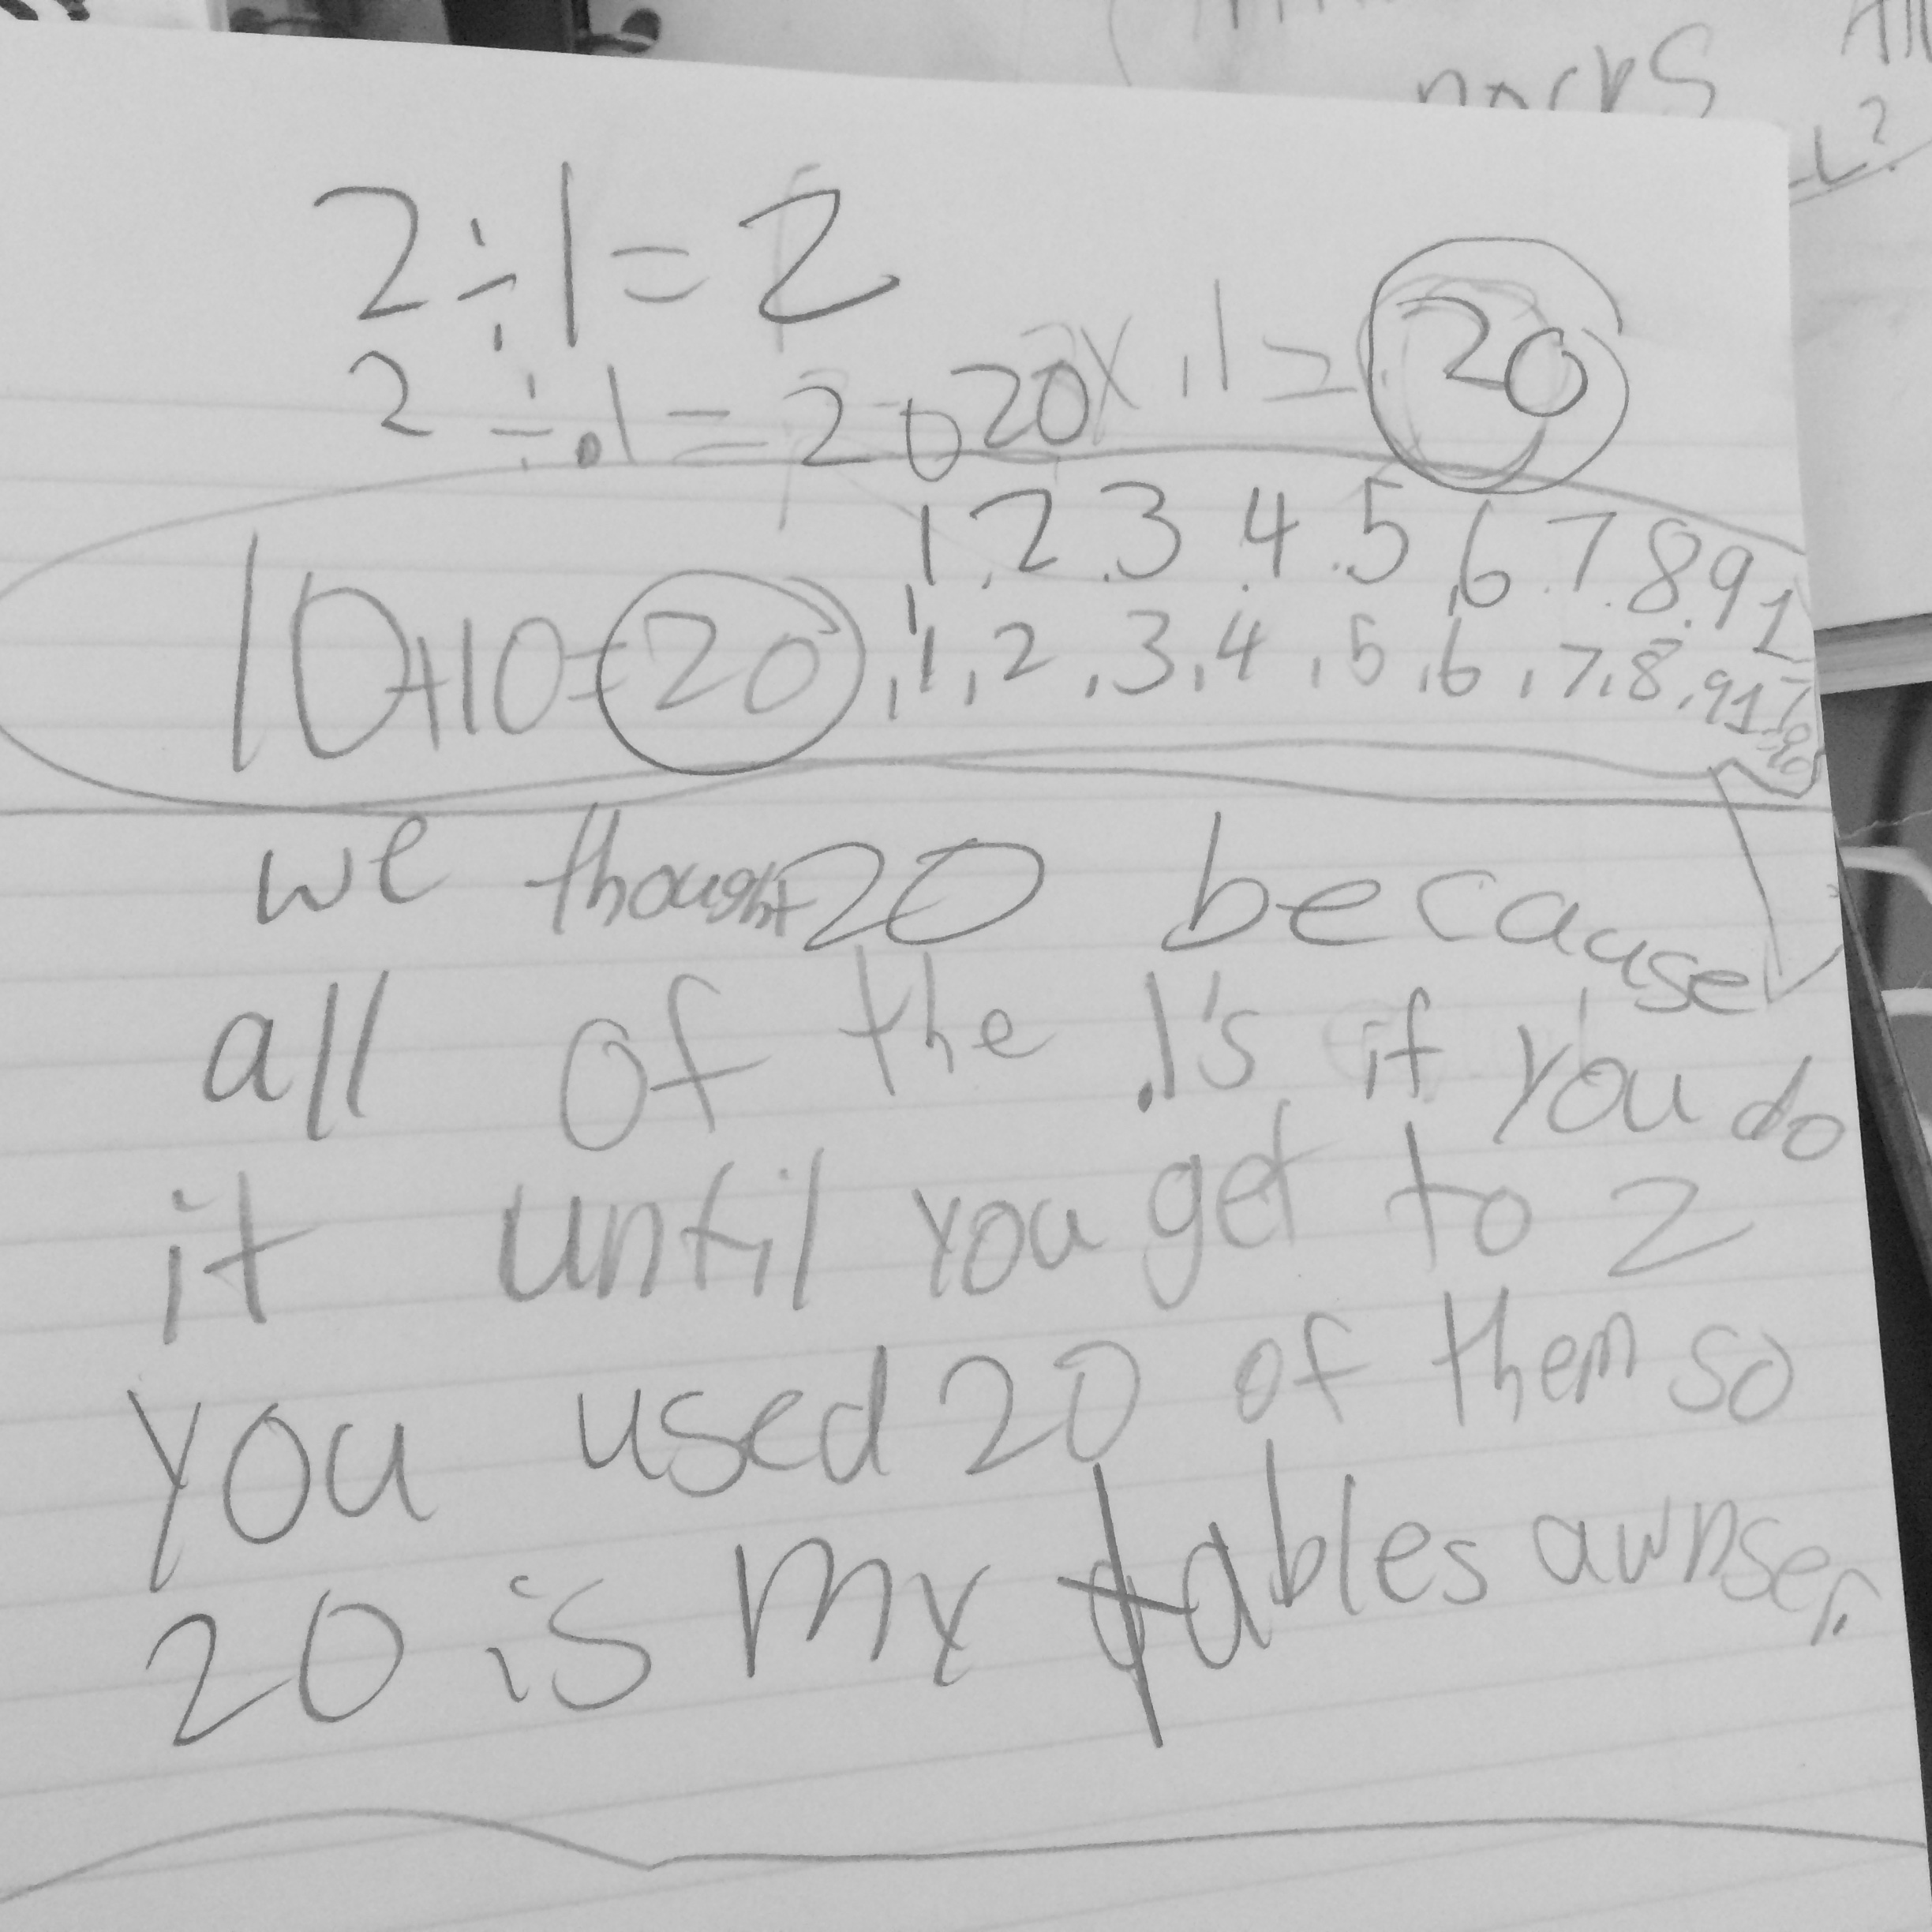 narks
L?
2÷1=2
2÷.1=20 20x.1=20
.1 .2 .3 .4 .5 .6 .7 .8 .9 1
10+10=20 .1 .2 .3 .4 .5 .6 .7 .8 .9 1
we thought 20 because
all of the .1's if you do
it until you get to 2
you used 20 of them so
20 is my tables awnser.